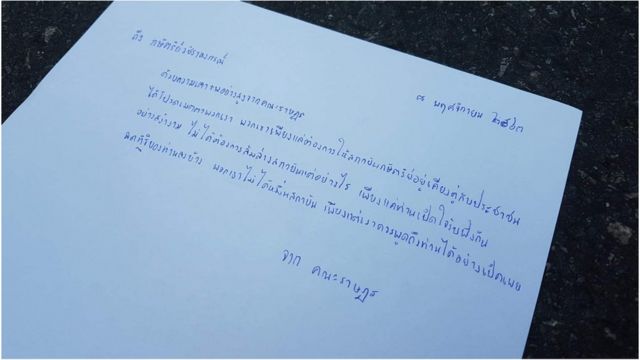 ถึง กษัตริย์วชิราลงกรณ์
๘ พฤศจิกายน ๒๕๖๓
ด้วยความเคารพอย่างสูงจากคณะราษฎร
ได้โปรดเมตตาพวกเรา พวกเราเพียงแค่ต้องการให้สถาบันกษัตริย์อยู่เคียงคู่กับประชาชน
อย่างสง่างาม ไม่ได้ต้องการล้มล้างสถาบันแต่อย่างไร เพียงแค่ท่านเปิดใจรับฟังกัน
ของท่านลงบ้าง พวกเราไม่ได้หมิ่นสถาบัน เพียงแต่เราควรพูดถึงท่านได้อย่างเปิดเผย
จาก คณะราษฎร